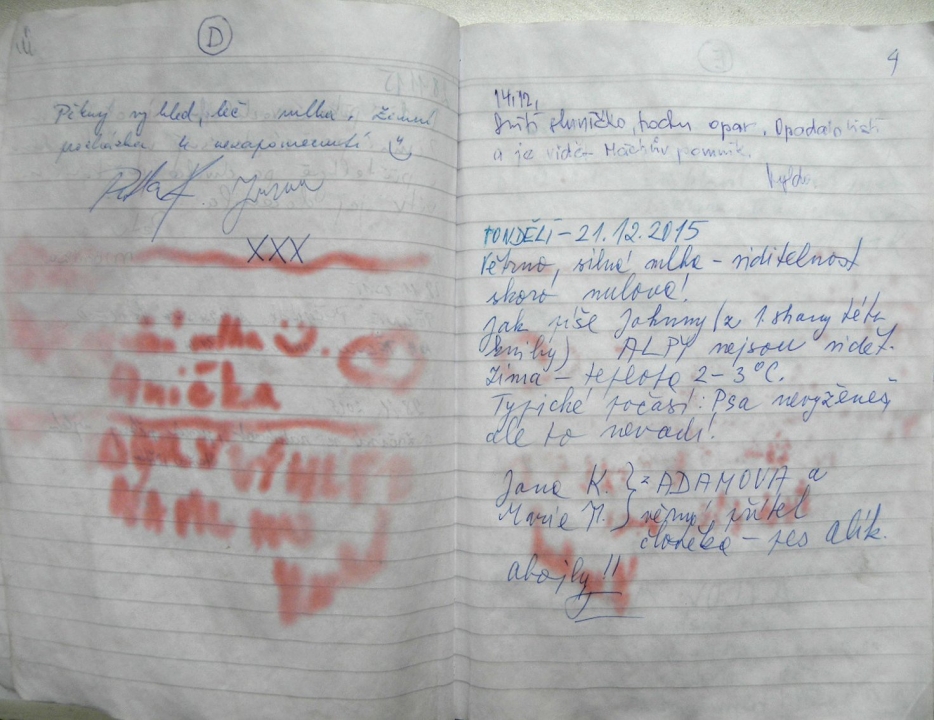 D
Pěkný výhled, leč mlha. Zimní
procházka k nezapomenutí
XXX
mlha
Anička
VÝHLED
4
14.12.
Svítí sluníčko, trochu opar. Opadalo listí
a je vidět Máchův pomník.
PONDĚLÍ – 21.12.2015
Větrno, silná mlha – viditelnost
skoro nulová!
Jak píše Johnny (z 1. strany této
knihy) ALPY nejsou vidět.
Zima – teplota 2–3°C.
Typické počasí: Psa nevyženeš
ale to nevadí!
Jana K. } z ADAMOVA a
Marie M. } věrný přítel
člověka – pes Alík.
ahojky!!